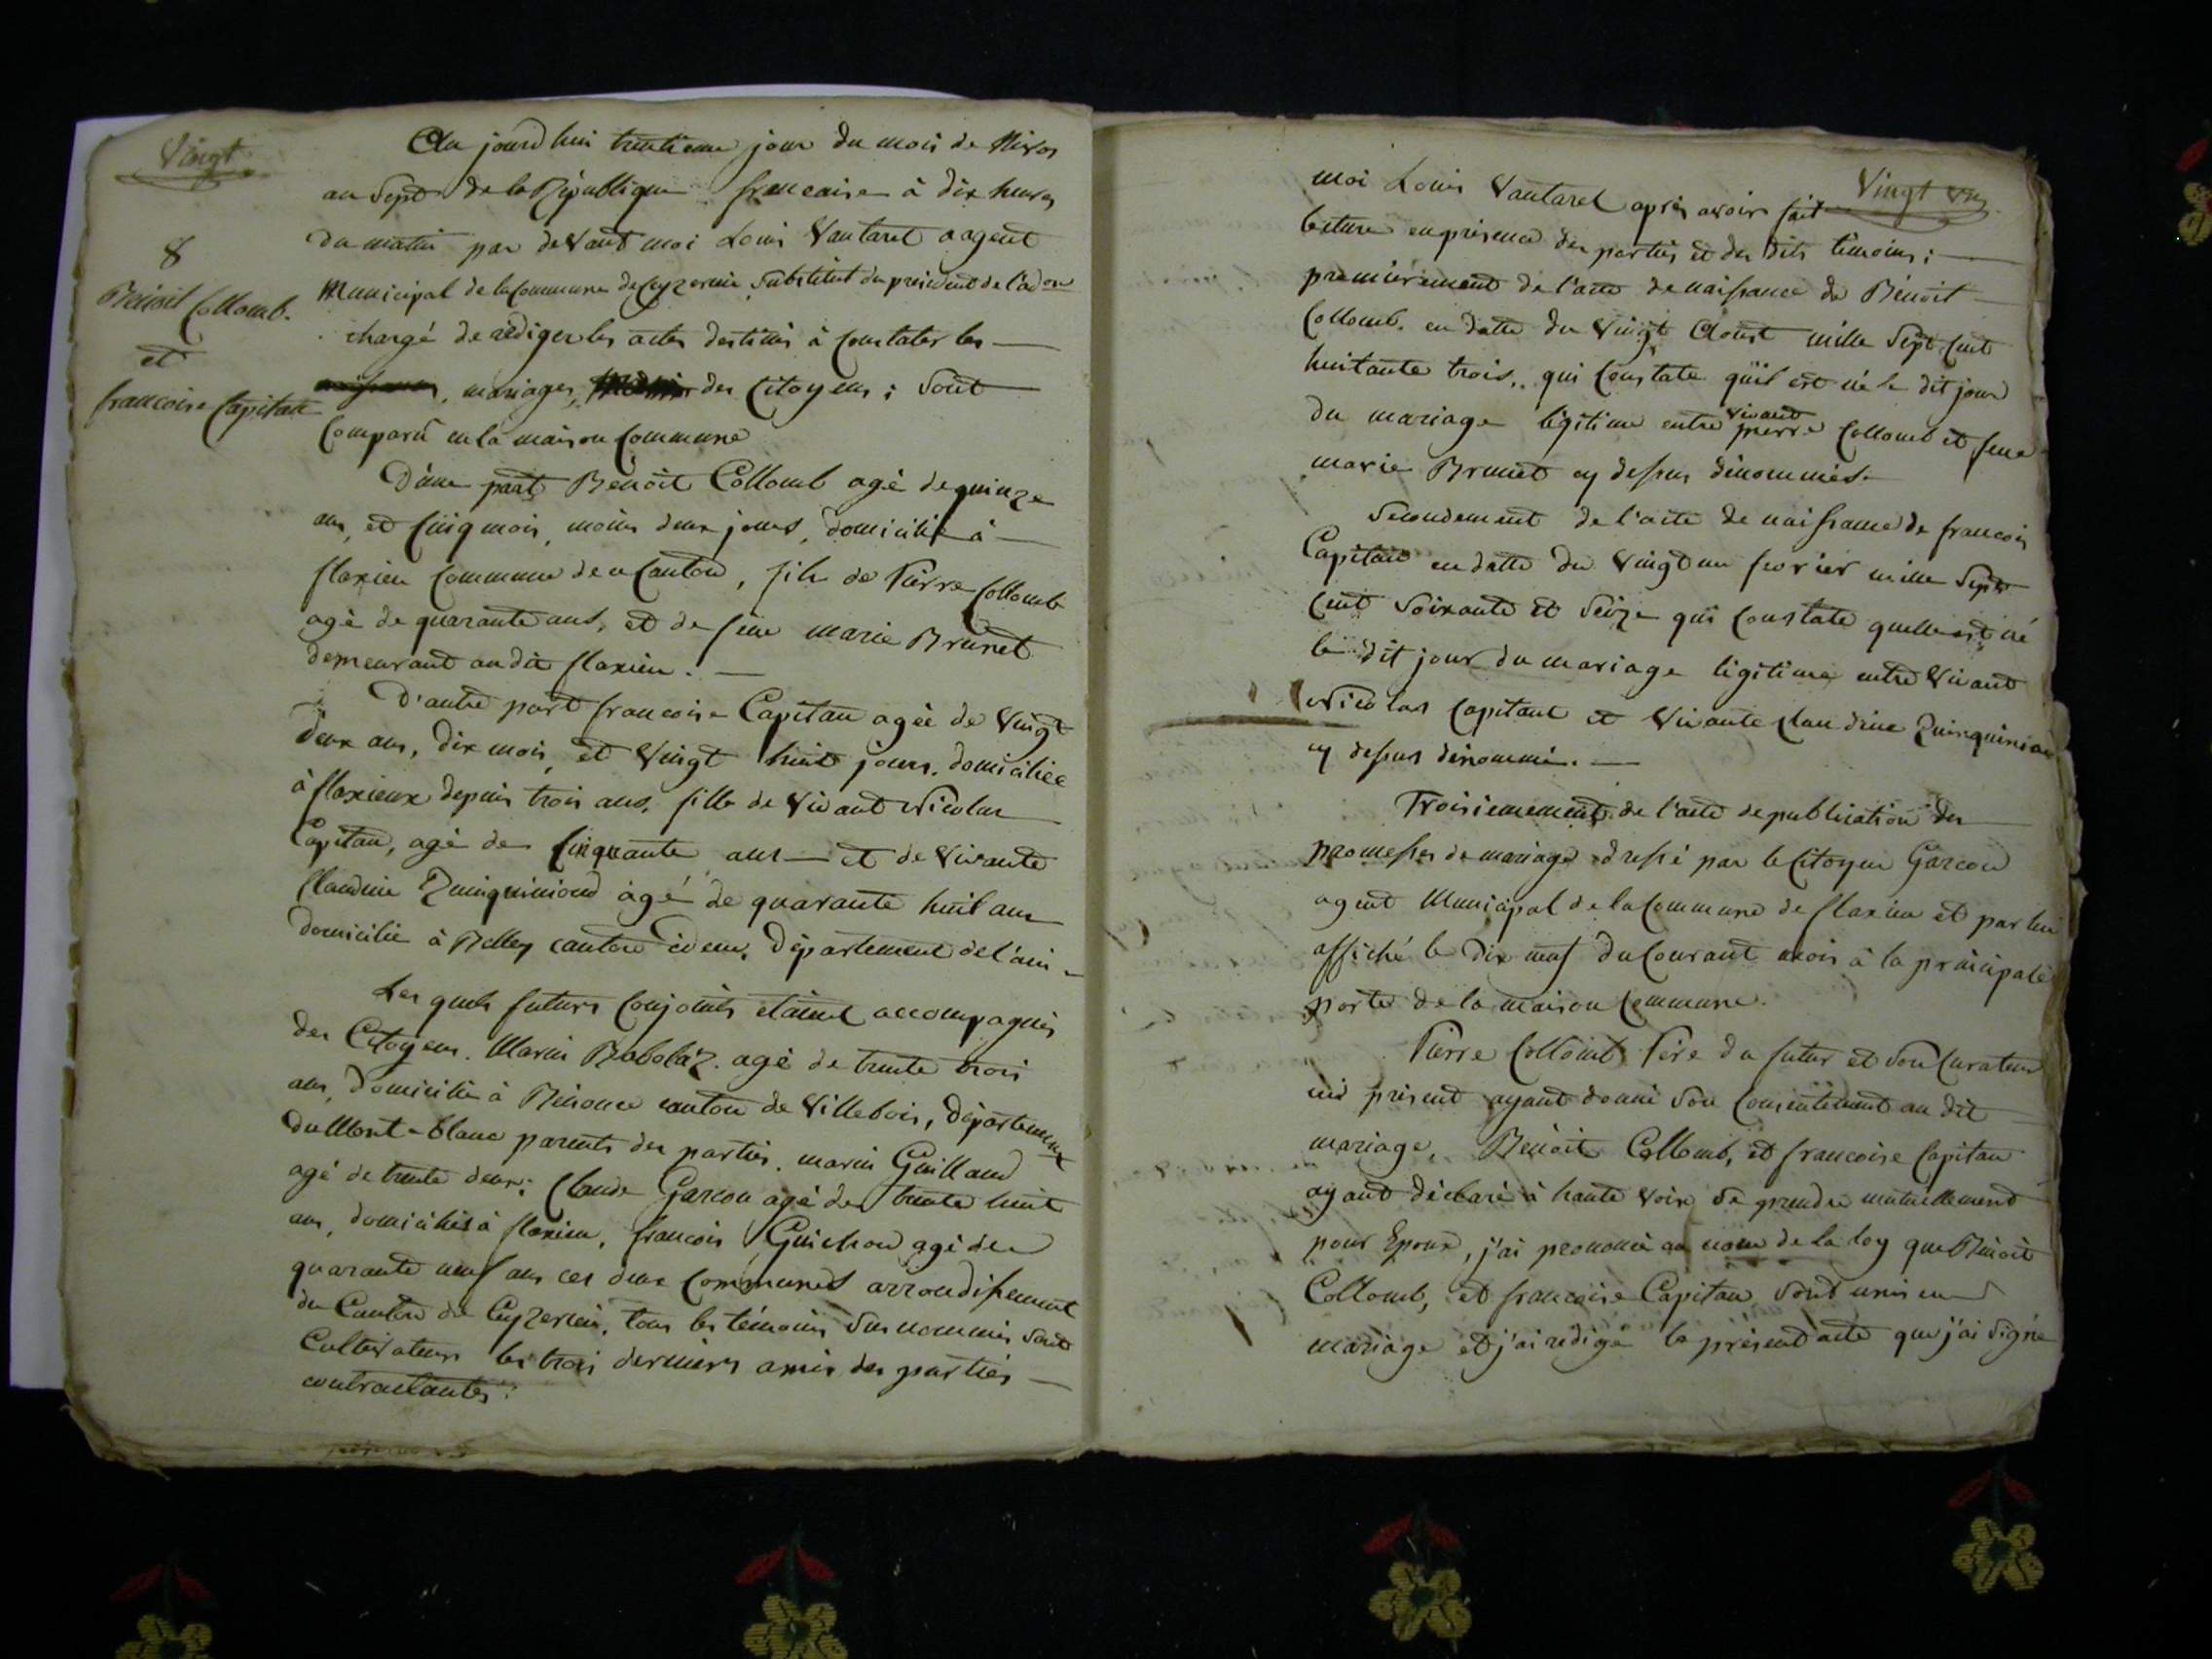 Vingt
8
Benoit Collomb.
et
francoise Capitan
Au jourd'hui trentieme jour du mois de Nivos
an Sept de la République francaise à dix heures
du matin par devant moi Louis Vautaret agent
Municipal de la Commune de Ceyzerieu substitut du president de l'adon
chargé de rédiger les actes destinés à constater les
naissances, mariages, des Citoyens ; sont
Comparû en la maison Commune
D'une part Benoit Collomb agé de quinze
ans, et cinq mois, moins deux jours, domicilié à
flaxieu commune de ce Canton, fils de Pierre Collomb
agé de quarante ans, et de feue marie Brunet
demeurant au dit flaxieu.
D'autre part francoise Capitan agée de Vingt
deux ans, dix mois, et Vingt huit jours, domiciliée
à flaxieux depuis trois ans, fille de Vivant Nicolas
Capitan, agé de Cinquante ans et de Vivante
Claudine Quinquiniond agé de quarante huit ans
domicilié à Belley canton idem, département de l'ain
Les quels futurs Conjoints étaient accompagnés
des Citoyens. Marin Bobolaz. agé de trente trois
ans, domicilié à canton de Villebois, département
du Mont-blanc parents des parties. marin Guilland
agé de trente deux ; Claude Garcon agé de trente huit
ans, domiciliés à flaxieu, francois Guichon agé de
quarante neuf ans ces deux Communes arrondissement
du Canton de Ceyzerieu, tous les témoins sus nommés sont
Cultivateurs les trois derniers amis des parties
contractantes.
Vingt un
moi Louis Vautaret après avoir fait
lecture en présence des parties et des dits témoins ;
premiérement de l'acte de naissance de Bénoit
Collomb. en datte du Vingt Aoust mille Sept Cent
huitante trois, qui Constate qu'il est né le dit jour
du mariage légitime entre vivant pierre Collomb et feue
marie Brunet cy dessus dénommés.
Secondement de l'acte de naissance de francois
Capitan en datte du Vingt un fevrier mille Sept
Cent Soixante et Seize qui Constate quelle est né
le dit jour du mariage légitime entre Vivant
Nicolas Capitant et Vivante Claudine Quinquiniond
cy dessus dénommé.
Troisiemement de l'acte de publication des
promesses de mariage dressé par le Citoyen Garcon
agent Municipal de la Commune de flaxieu et par lui
affiché le dix neuf du Courant mois à la principale
porte de la maison Commune.
Pierre Collomb Père du futur et son Curateur
ici présent ayant donné son Consentement au dit
mariage, Benoit Collomb, et francoise Capitan
ayant déclaré à haute voix se prendre mutuellement
pour Epoux, j'ai prononcé au nom de la loy que Bénoit
Collomb, et francoise Capitan sont unis en
mariage et j'ai rédigé le présent acte que j'ai Signé